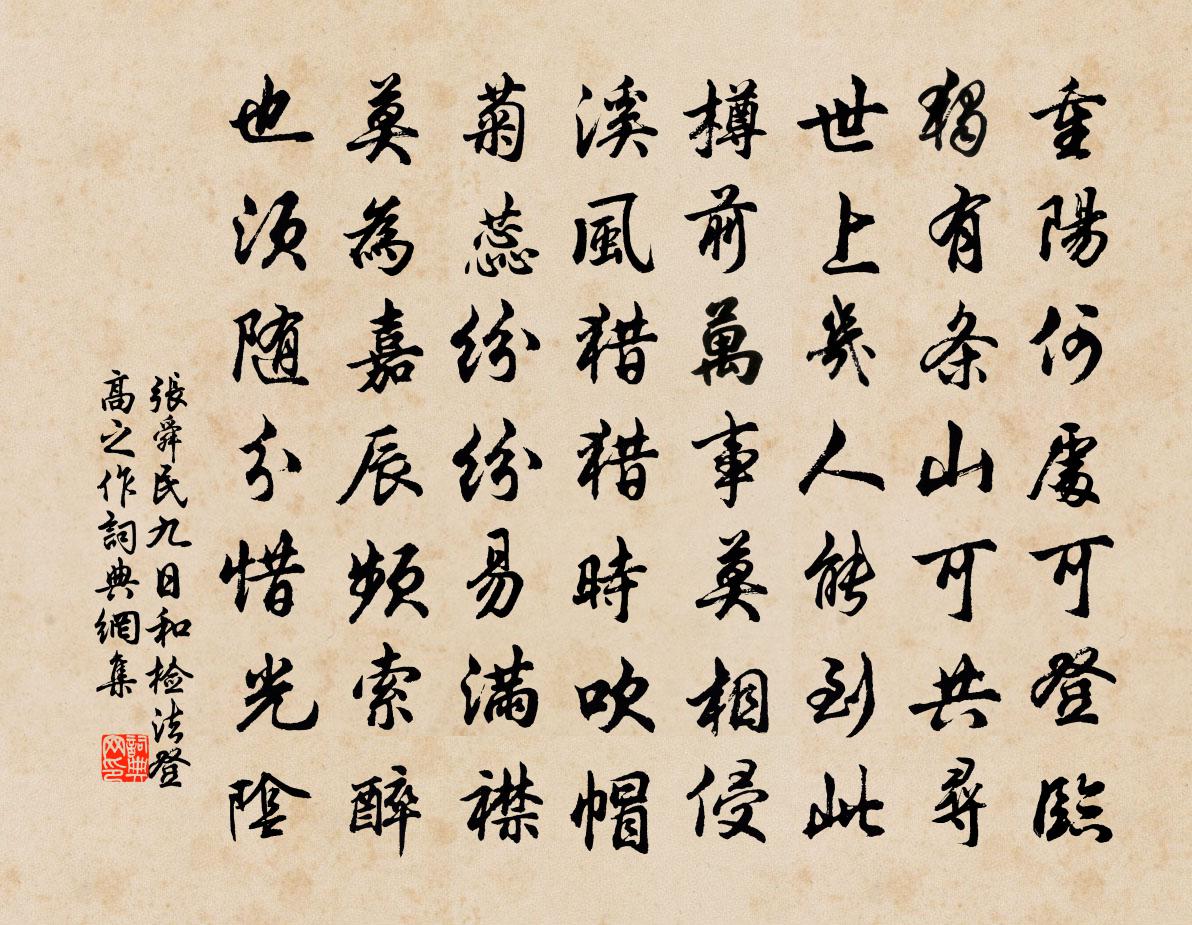 重陽何處可登臨
獨有条山可共尋
世上幾人能到此
樽前萬事莫相侵
溪風猎猎時吹帽
菊蕊紛紛易滿襟
莫為嘉辰頻索醉
也須随分惜光陰
張舜民九日和檢法登
高之作詞典網集
詞典
网印